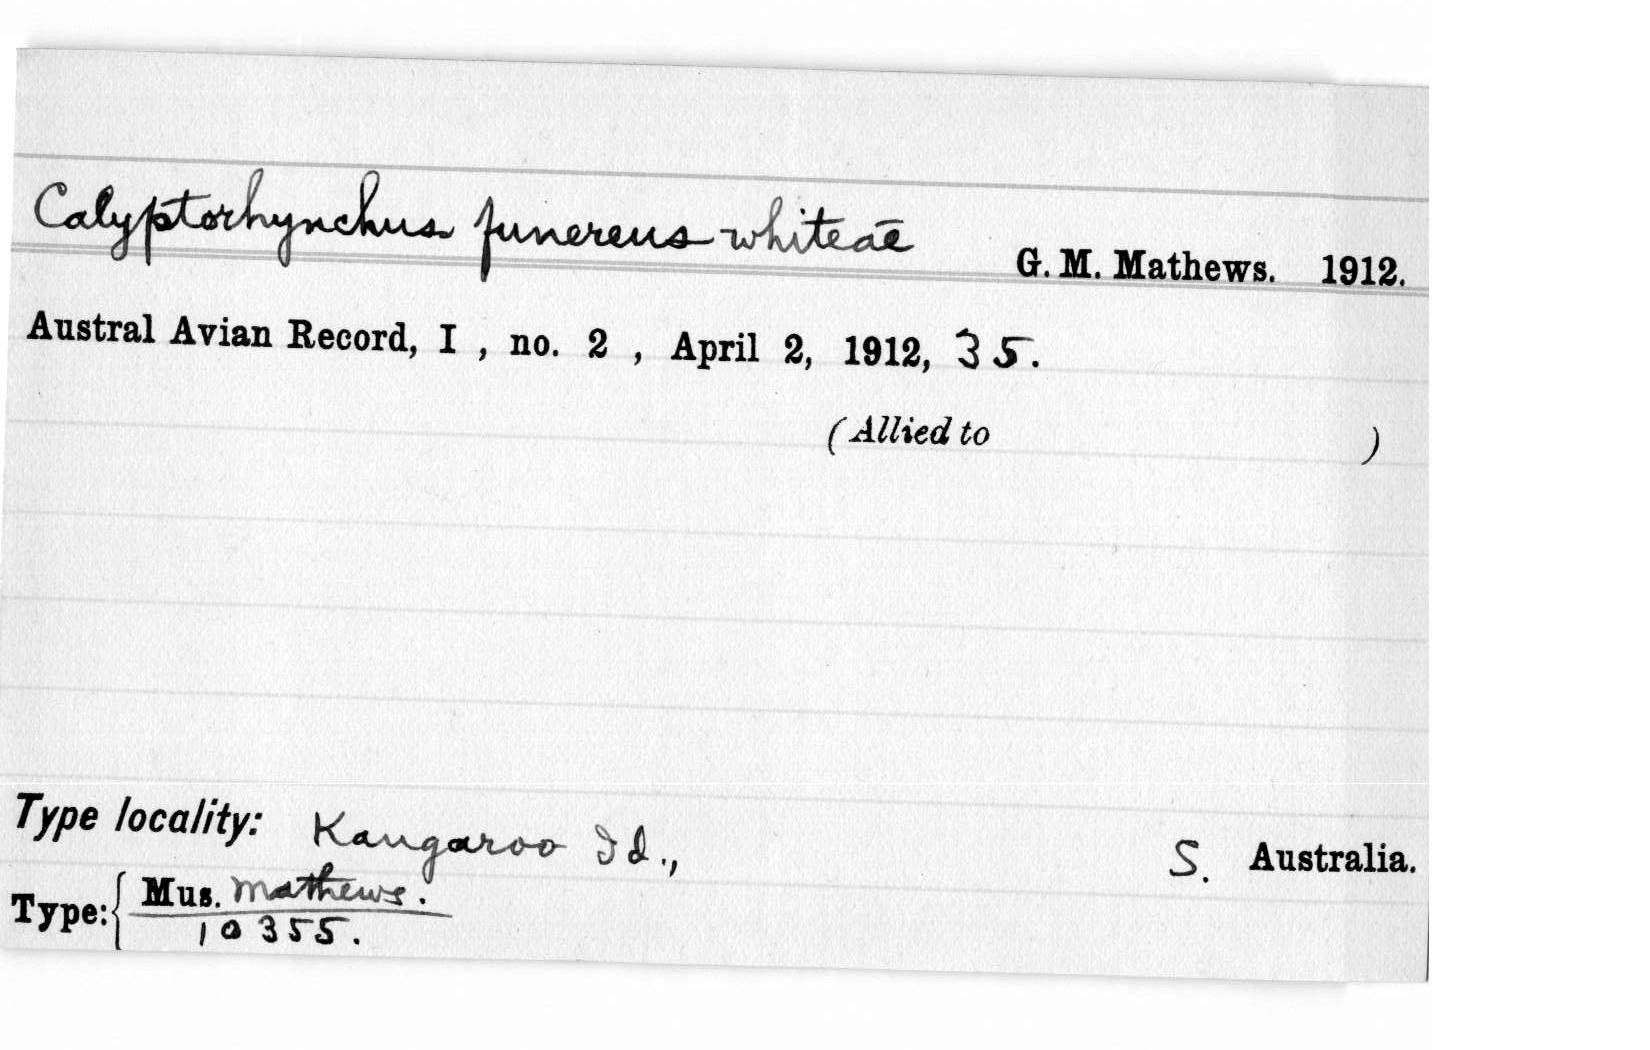 Calyptorhynchus funereus whiteae G. M. Mathews. 1912.
Austral Avian Record, I , no. 2 , April 2, 1912, 35.
(Allied to )
Type locality: Kangaroo Id., S. Australia.
Type: { Mus. Mathews.
10355.